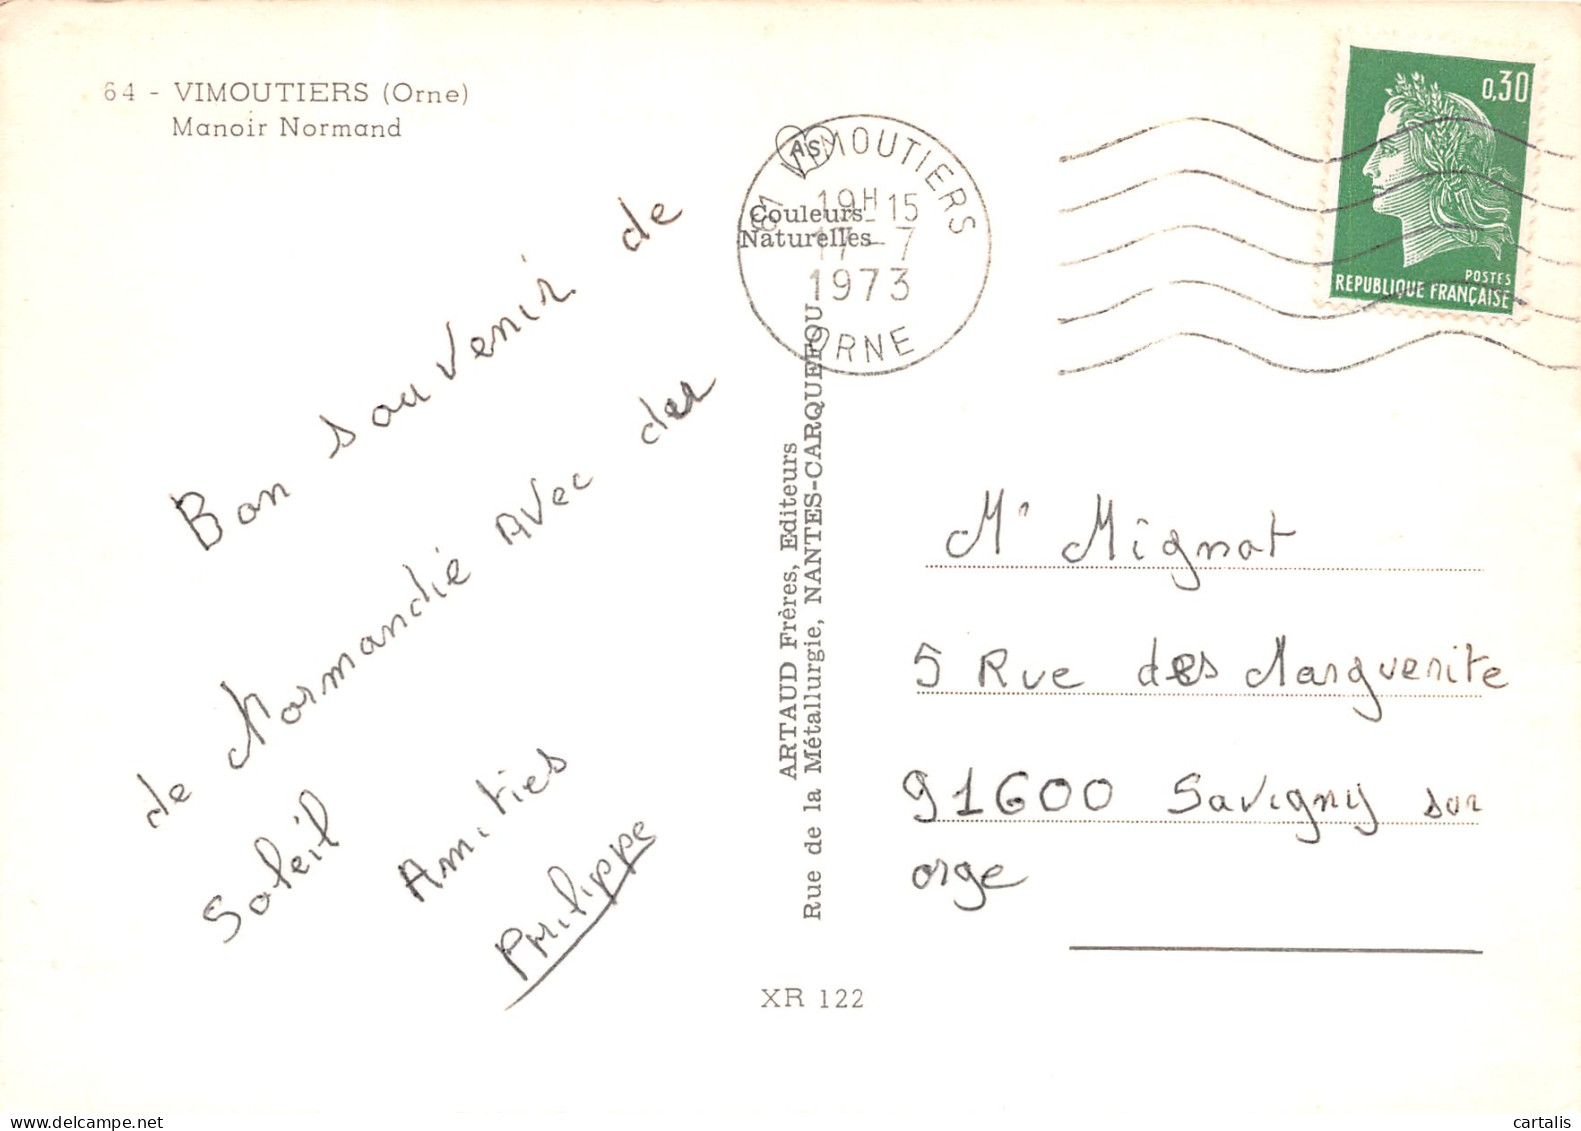 64 - VIMOUTIERS (Orne)
Manoir Normand
Bon souvenir de
de Normandie Avec der
Soleil
Amities
Philippe
AS
Couleurs
Naturelles
61 VIMOUTIERS
19H-15
17-7
1973
ORNE
ARTAUD Frères, Editeurs
Rue de la Métallurgie, NANTES-CARQUEFOU
XR 122
0,30
POSTES
REPUBLIQUE FRANÇAISE
Mr Mignot
5 Rue des Marguerite
91600 Savigny sur
orge
cartalis